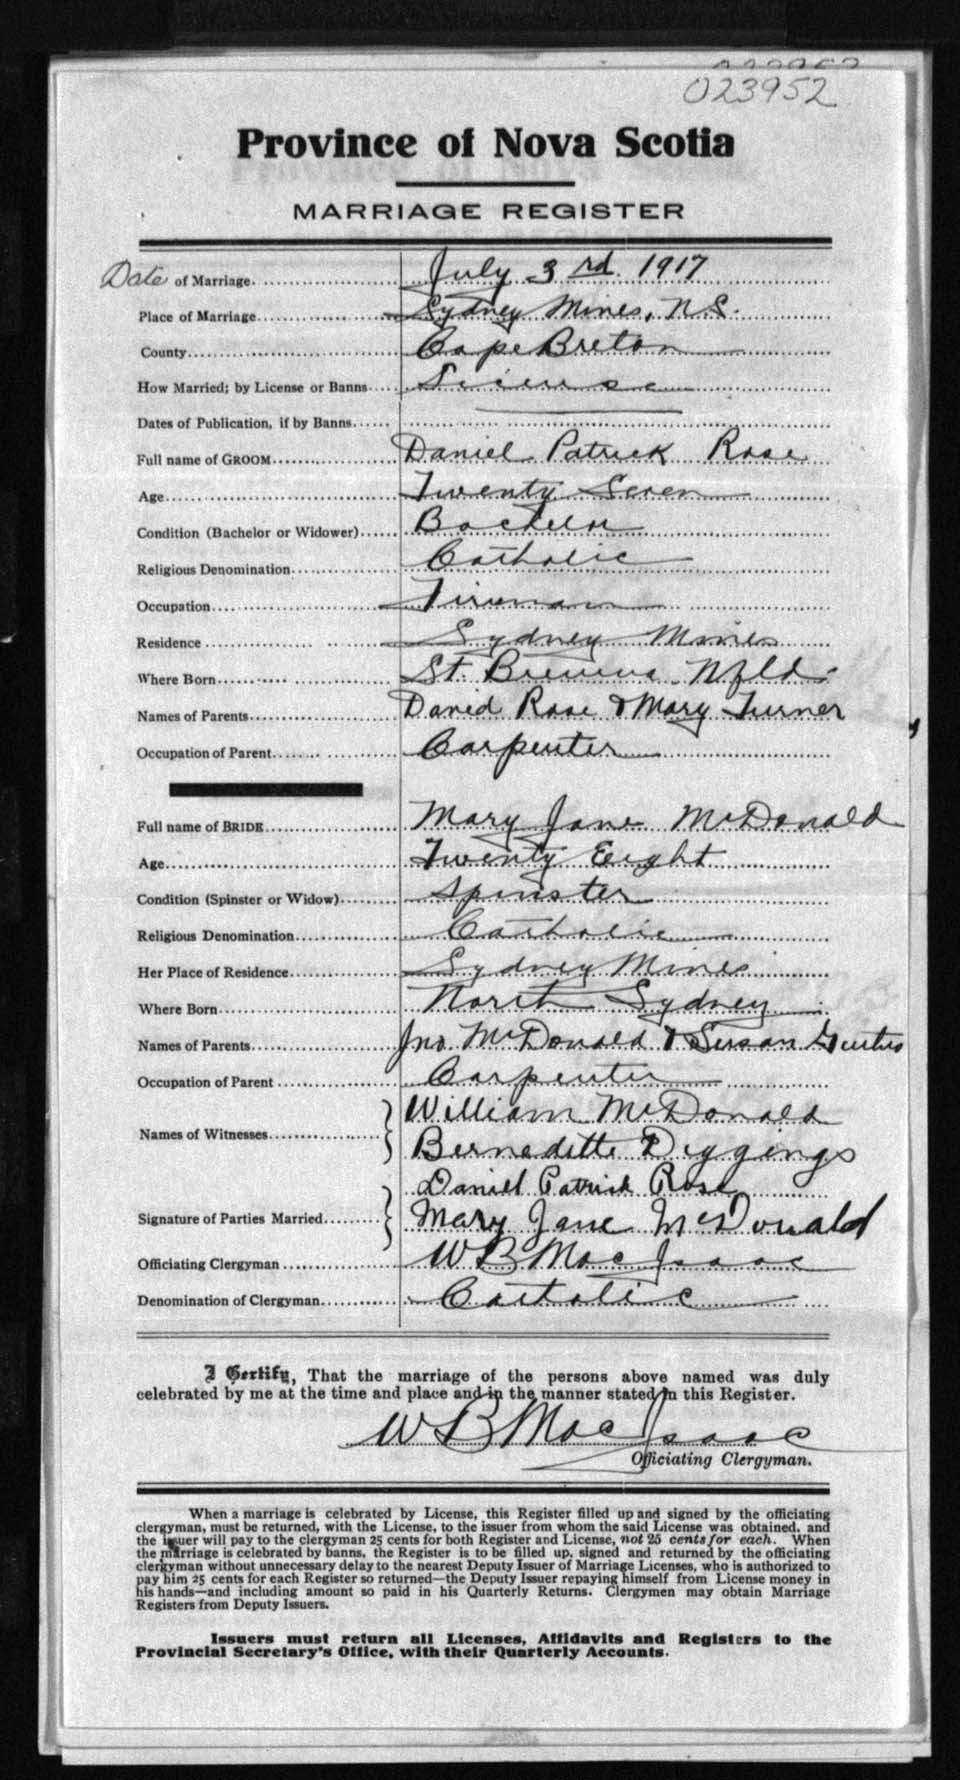 023952
Province of Nova Scotia
MARRIAGE REGISTER
Date of Marriage July 3rd. 1917
Place of Marriage Sydney Mines, N.S.
County Cape Breton
How Married; by License or Banns License
Dates of Publication, if by Banns
Full name of GROOM Daniel Patrick Rose
Age Twenty Seven
Condition (Bachelor or Widower) Bachelor
Religious Denomination Catholic
Occupation Fireman
Residence Sydney Mines
Where Born St. Nfld.
Names of Parents David Rose & Mary Turner
Occupation of Parent Carpenter
Full name of BRIDE Mary Jane McDonald
Age Twenty Eight
Condition (Spinster or Widow) Spinster
Religious Denomination Catholic
Her Place of Residence Sydney Mines
Where Born North Sydney
Names of Parents Jno. McDonald & Susan
Occupation of Parent Carpenter
Names of Witnesses William McDonald
Bernedette Diggings
Daniel Patrick Rose
Signature of Parties Married Mary Jane McDonald
Officiating Clergyman W B MacIsaac
Denomination of Clergyman Catholic
I Certify, That the marriage of the persons above named was duly
celebrated by me at the time and place and in the manner stated in this Register.
W B MacIsaac
Officiating Clergyman.
When a marriage is celebrated by License, this Register filled up and signed by the officiating
clergyman, must be returned, with the License, to the issuer from whom the said License was obtained, and
the issuer will pay to the clergyman 25 cents for both Register and License, not 25 cents for each. When
the marriage is celebrated by banns, the Register is to be filled up, signed and returned by the officiating
clergyman without unnecessary delay to the nearest Deputy Issuer of Marriage Licenses, who is authorized to
pay him 25 cents for each Register so returned—the Deputy Issuer repaying himself from License money in
his hands—and including amount so paid in his Quarterly Returns. Clergymen may obtain Marriage
Registers from Deputy Issuers.
Issuers must return all Licenses, Affidavits and Registers to the
Provincial Secretary's Office, with their Quarterly Accounts.